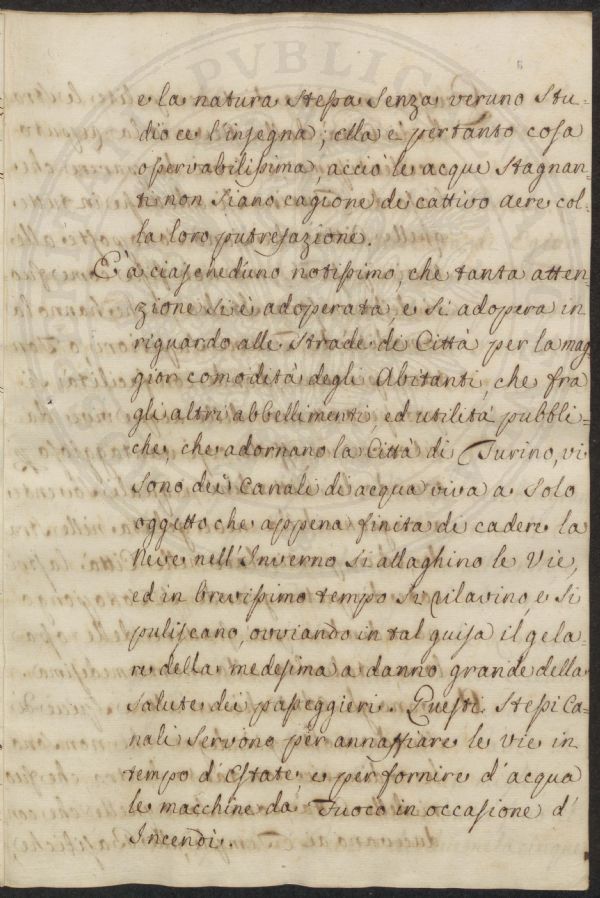 e la natura stessa senza veruno stu-
dio ce l'insegna; ella è pertanto cosa
osservabilissima acciò le acque stagnan-
ti non siano cagione di cattivo aere col-
la loro putrefazione.
È a ciascheduno notissimo, che tanta atten-
zione si è adoperata e si adopera in
riguardo alle strade di Città per la mag
gior comodità degli Abitanti, che fra
gli altri abbellimenti, ed utilità pubbli-
che, che adornano la Città di Turino, vi
sono dei Canali di acqua viva a solo
oggetto che appena finita di cadere la
Neve nell'Inverno si allaghino le Vie,
ed in brevissimo tempo si rilavino, e si
puliscano, ovviando in tal guisa il gela-
re della medesima a danno grande della
salute dei passeggieri. Questi stessi Ca-
nali servono per annaffiare le vie in
tempo d'Estate e per fornire d'acqua
le macchine da Fuoco in occasione d'
Incendi.